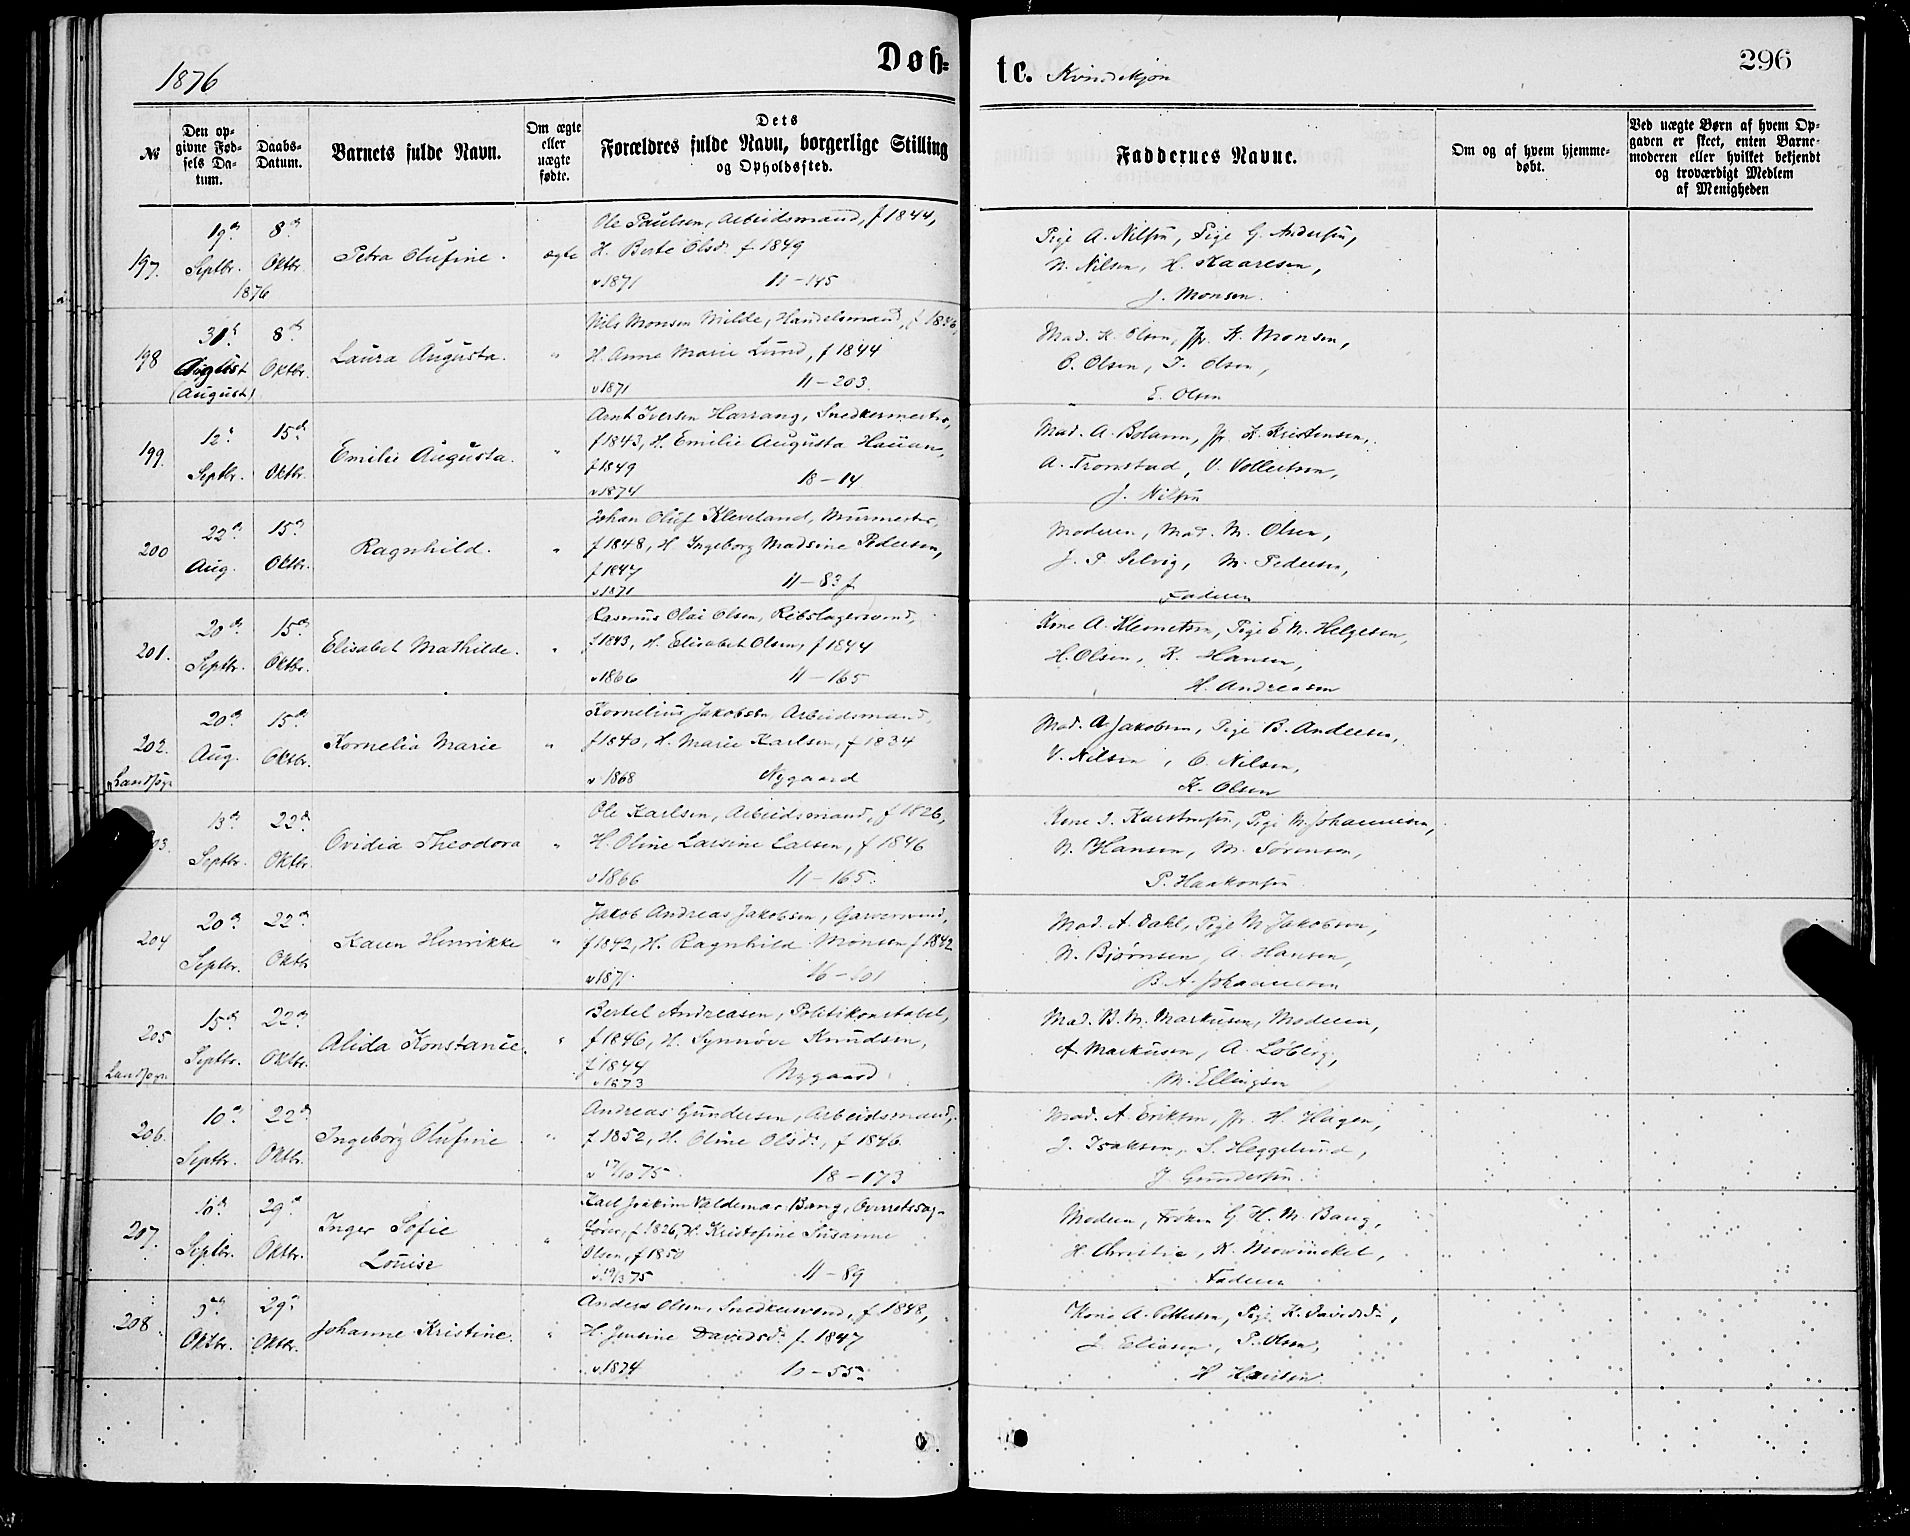 1876
Døb=
te. Kvindekjøn
296
№
Den op-
givne Fød-
sels Da-
tum.
Daabs-
Datum.
Barnets fulde Navn.
Om ægte
eller
uægte
fødte.
Dets
Forældres fulde Navn, borgerlige Stilling
og Opholdssted.
Faddernes Navne.
Om og af hvem hjemme-
døbt.
Ved uægte Børn af hvem Op-
gaven er skeet, enten Barne-
moderen eller hvilket bekjendt
og troværdigt Medlem
af Menigheden
197.
19de Septbr. 1876
8de Oktbr.
Petra Olufine.
ægte
Ole Paulsen, Arbeidsmand, f 1844,
H. Berte Olsd. f 1849
v 1871 11-145
Pige A. Nilsen, Pige G. Andersen,
N. Nilsen, H. Kaaresen,
J. Monsen.
198
31te August (August)
8de Oktbr.
Laura Augusta.
"
Nils Monsen Milde, Handelsmand, f 1846,
H. Anna Marie Lund, f 1844
v 1871 11-203.
Mad. K. Olsen, Jfr. K. Monsen,
O. Olsen, I. Olsen,
E. Olsen
199.
12te Septbr.
15de Oktbr.
Emilie Augusta.
"
Arnt Iversen Harrang, Snedkermester,
f 1843, H. Emilie Augusta Hauan,
f 1849
v 1874 18-14
Mad. A. Bolann, Jfr. L. Kristensen,
A. Tronstad, V. Vollertsen,
J. Nilsen
200
22de Aug.
15de Oktbr.
Ragnhild.
"
Johan Oluf Kleveland, Murmester,
f 1848, H. Ingeborg Madsine Pedersen,
f 1847
v 1871 11-83 f
Moderen, Mad. M. Olsen,
J. P. Selvig, M. Pedersen,
Faderen
201.
20de Septbr.
15de Oktbr.
Elisabet Mathilde.
"
Rasmus Olai Olsen, Rebslagersvend,
f 1843, H. Elisabet Olsen, f 1844
v 1866 11-165
Kone A. Klemetsen, Pige E. M. Helgesen,
H. Olsen, K. Hansen,
H. Andreasen
202.
Landsogn
20de Aug.
15de Oktbr.
Kornelia Marie
"
Kornelius Jakobsen, Arbeidsmand,
f 1840, H. Marie Karlsen, f 1834
v 1868 Nygaard
Mad. A. Jakobsen, Pige B. Andersen,
V. Nilsen, O. Nilsen,
K. Olsen
03.
13de Septbr.
22de Oktbr.
Ovidia Theodora
"
Ole Karlsen, Arbeidsmand, f 1826,
H. Oline Larsine Larsen, f 1846
v 1866 11-165.
Kone I. Karstensen, Pige M. Johannesen,
N. Hansen, M. Sørensen,
P. Haakonsen
204
20de Septbr.
22de Oktbr
Karen Henrikke
"
Jakob Andreas Jakobsen, Garversvend,
f 1842, H. Ragnhild Monsen f 1842
v 1871. 16-101
Mad. A. Dahl, Pige M. Jakobsen,
N. Bjørnsen, A. Hansen,
B. A. Johannesen
205
Landsogn
15de Septbr.
22de Oktbr.
Alida Konstance.
"
Bertel Andreasen, Politikonstabel,
f 1846, H. Synnøve Knudsen,
f 1844
v 1873 Nygaard
Mad. B. M. Markusen, Moderen,
A. Markusen, A. Løberg,
M. Ellingsen
206.
10de Septbr.
22de Oktbr.
Ingeborg Olufine
"
Andreas Gundersen, Arbeidsmand,
f 1852, H. Oline Olsd., f 1846
v 17/10 75 18-173
Mad. A. Eriksen, Jfr. H. Hagen,
J. Isaksen, S. Heggelund,
J. Gundersen.
207.
10de Septbr.
29de Oktbr.
Inger Sofie
Louise
"
Karl Joakim Valdemar Bang, Overretssag-
fører, f. 1826, H. Kristofine Susanne
Olsen, f 1850
v 19/3 75 11-89
Moderen, Frøken G. H. M. Bang,
H. Christie, K. Mowinckel,
Faderen
208
Oktbr.
29de Oktbr.
Johanne Kristine.
"
Anders Olsen, Snedkersvend, f 1848,
H. Jensine Davidsd. f. 1847
v 1874 10-55.
Kone A. Pettersen, Pige K. Davidsd.,
J. Eliasen, P. Olsen,
H.